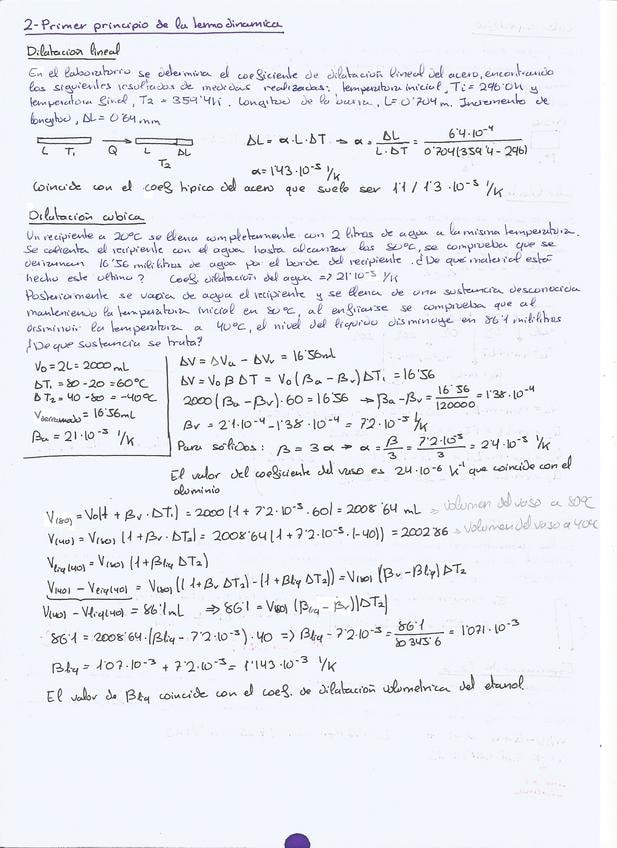 2-Primer principio de la termodinamica
Dilatacion lineal
En el laboratorio se determina el coeficiente de dilatación lineal del acero, encontrando
los siguientes resultados de medidas realizadas: temperatura inicial, Ti = 296'0K y
temperatura final, T2 = 359'4K. Longitud de la barra, L = 0'704m. Incremento de
longitud, ΔL = 0'64mm
L T₁ Q L ΔL T₂
ΔL = α·L·ΔT ⇒ α = ΔL / L·ΔT = 6'4·10⁻⁴ / 0'704(359'4-296)
α = 1'43·10⁻⁵ 1/K
Coincide con el coef típico del acero que suele ser 1'1 / 1'3 · 10⁻⁵ 1/K
Dilatación cubica
Un recipiente a 20°C se llena completamente con 2 litros de agua a la misma temperatura.
Se calienta el recipiente con el agua hasta alcanzar los 80°C, se comprueba que se
derraman 16'56 mililitros de agua por el borde del recipiente. ¿De que material está
hecho este ultimo? Coef dilatación del agua ⇒ 21·10⁻⁵ 1/K
Posteriormente se vacia de agua el recipiente y se llena de una sustancia desconocida
manteniendo la temperatura inicial en 80°C, al enfriarse se comprueba que al
disminuir la temperatura a 40°C, el nivel del líquido disminuye en 86'1 mililitros
¿De que sustancia se trata?
V₀ = 2L = 2000 mL
ΔT₁ = 80-20 = 60°C
ΔT₂ = 40-80 = -40°C
Vderramado = 16'56mL
Ba = 21·10⁻⁵ 1/K
ΔV = ΔVa - ΔVr = 16'56mL
ΔV = V₀ B ΔT = V₀ (Ba - Br) ΔT₁ = 16'56
2000 (Ba - Br)·60 = 16'56 → Ba - Br = 16'56 / 120000 = 1'38·10⁻⁴
Br = 2'1·10⁻⁴ - 1'38·10⁻⁴ = 7'2·10⁻⁵ 1/K
Para sólidos: β = 3α → α = β/3 = 7'2·10⁻⁵ / 3 = 2'4·10⁻⁵ 1/K
El valor del coeficiente del vaso es 24·10⁻⁶ K⁻¹ que coincide con el
aluminio
V(80) = V₀(1 + Br·ΔT₁) = 2000(1 + 7'2·10⁻⁵·60) = 2008'64 mL ⇒ Volumen del vaso a 80°C
V(40) = V(80) (1 + Br ΔT₂) = 2008'64 (1 + 7'2·10⁻⁵·(-40)) = 2002'86 ⇒ Volumen del vaso a 40°C
Vliq(40) = V(80) (1 + Bliq ΔT₂)
V(40) - Vliq(40) = V(80) ((1 + Br ΔT₂) - (1 + Bliq ΔT₂)) = V(80) (Br - Bliq) ΔT₂
V(40) - Vliq(40) = 86'1mL ⇒ 86'1 = V(80) (Bliq - Br) |ΔT₂|
86'1 = 2008'64·(Bliq - 7'2·10⁻⁵)·40 ⇒ Bliq - 7'2·10⁻⁵ = 86'1 / 80345'6 = 1'071·10⁻³
Bliq = 1'07·10⁻³ + 7'2·10⁻⁵ = 1'143·10⁻³ 1/K
El valor de Bliq coincide con el coef. de dilatación volumetrica del etanol.